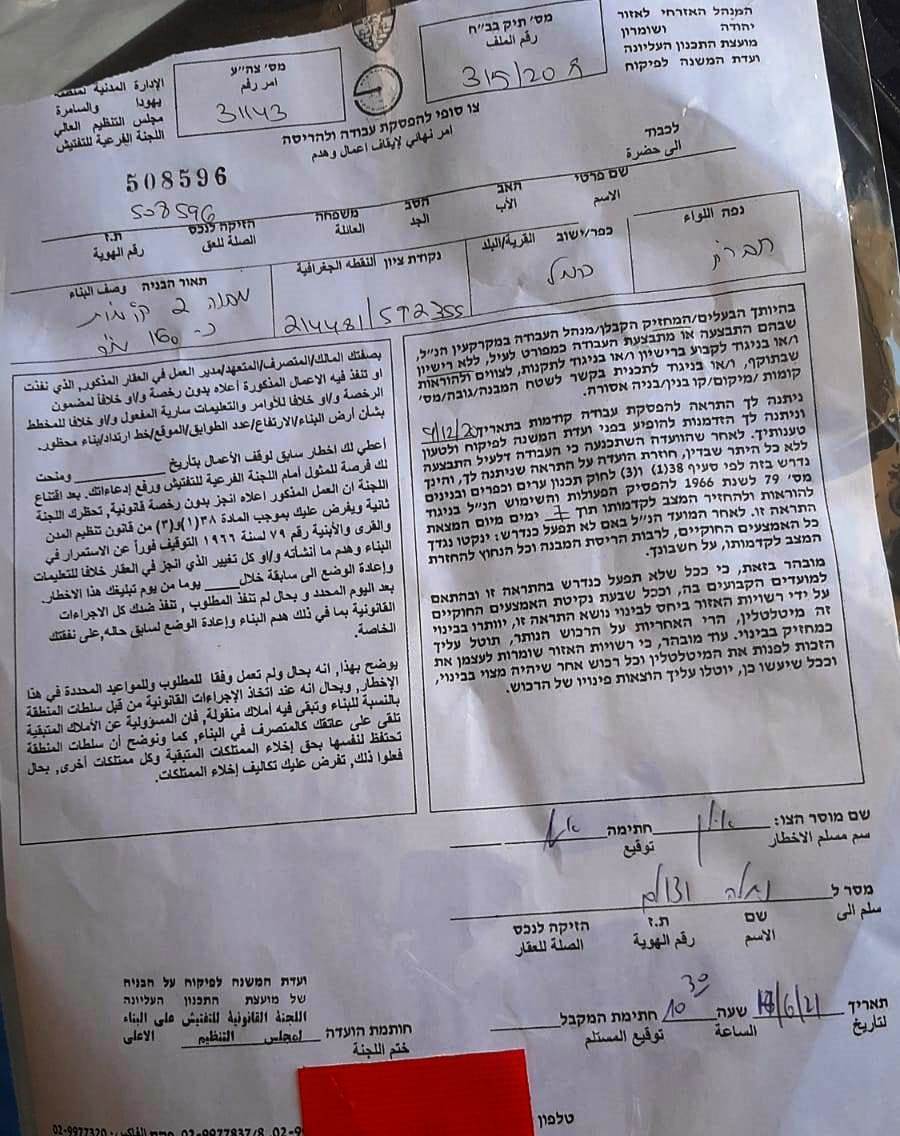 המנהל האזרחי לאזור
יהודה ושומרון
מועצת התכנון העליונה
ועדת המשנה לפיקוח
מס' תיק בב"ח
رقم الملف
315/20
מס' צה"ע
امر رقم
31143
الإدارة المدنية لمنطقة
يهودا والسامرة
مجلس التنظيم العالي
اللجنة الفرعية للتفتيش
צו סופי להפסקת עבודה ולהריסה
امر نهائي لإيقاف اعمال وهدم
508596
508596
לכבוד
الى حضرة
שם פרטי האב הסב משפחה הזיקה לנכס ת.ז
الاسم الأب الجد العائلة الصلة للعق رقم الهوية
נפה اللواء
חברון
כפר/ישוב القرية/البلد
כרמל
נקודת ציון النقطه الجغرافية
214481/592355
תאור הבניה وصف البناء
מבנה 2 קומות
כ- 160 מ"ר
בהיותך הבעלים/המחזיק הקבלן/מנהל העבודה במקרקעין הנ"ל,
שבהם התבצעה או מתבצעת העבודה כמפורט לעיל, ללא רישיון
ו/או בניגוד לקבוע ברישיון ו/או בניגוד לתקנות, לצווים ולהוראות
שבתוקף, ו/או בניגוד לתכנית בקשר לשטח המבנה/גובה/מס'
קומות /מיקום/קו בנין/בניה אסורה.
ניתנה לך התראה להפסקת עבודה קודמות בתאריך 9/12/20
וניתנה לך הזדמנות להופיע בפני ועדת המשנה לפיקוח ולטעון
טענותיך. לאחר שהוועדה השתכנעה כי העבודה דלעיל התבצעה
ללא כל היתר שבדין, חוזרת הועדה על התראה שניתנה לך, והינך
נדרש בזה לפי סעיף 38(1) ו(3) לחוק תכנון ערים וכפרים ובניינים
מס' 79 לשנת 1966 להפסיק הפעולות והשימוש הנ"ל בניגוד
להוראות ולהחזיר המצב לקדמותו תוך 7 ימים מיום המצאת
התראה זו. לאחר המועד הנ"ל באם לא תפעל כנדרש: ינקטו נגדך
כל האמצעים החוקיים, לרבות הריסת המבנה וכל הנחוץ להחזרת
המצב לקדמותו, על חשבונך.
מובהר בזאת, כי ככל שלא תפעל כנדרש בהתראה זו ובהתאם
למועדים הקבועים בה, וככל שבעת נקיטת האמצעים החוקיים
על ידי רשויות האזור ביחס לבינוי נושא התראה זו, יוותרו בבינוי
זה מיטלטלין, הרי האחריות על הרכוש הנותר, תוטל עליך
כמחזיק בבינוי. עוד מובהר, כי רשויות האזור שומרות לעצמן את
הזכות לפנות את המיטלטלין וכל רכוש אחר שיהיה מצוי בבינוי,
וככל שיעשו כן, יוטלו עליך הוצאות פינויו של הרכוש.
بصفتك المالك/المتصرف/المتعهد/مدير العمل في العقار المذكور, الذي نفذت
او تنفذ فيه الاعمال المذكورة أعلاه بدون رخصة و/او خلافا لمضمون
الرخصة و/او خلافا للأوامر والتعليمات سارية المفعول و/او خلافا للمخطط
بشأن أرض البناء/الارتفاع/عدد الطوابق/الموقع/خط ارتداد/بناء محظور.
أعطي لك اخطار سابق لوقف الأعمال بتاريخ ____________ ومنحت
لك فرصة للمثول أمام اللجنة الفرعية للتفتيش ورفع إدعاءاتك. بعد اقتناع
اللجنة ان العمل المذكور اعلاه انجز بدون رخصة قانونية, تحظرك اللجنة
ثانية ويفرض عليك بموجب المادة ٣٨(١)و(٣) من قانون تنظيم المدن
والقرى والأبنية رقم ٧٩ لسنة ١٩٦٦ التوقيف فوراً عن الاستمرار في
البناء وهدم ما أنشأته و/او كل تغيير الذي انجز في العقار خلافا للتعليمات
وإعادة الوضع الى سابقة خلال ____ يوما من يوم تبليغك هذا الاخطار.
بعد اليوم المحدد و بحال لم تنفذ المطلوب , تنفذ ضدك كل الاجراءات
القانونية بما في ذلك هدم البناء وإعادة الوضع لسابق حاله,على نفقتك
الخاصة.
يوضح بهذا, انه بحال ولم تعمل وفقا للمطلوب وللمواعيد المحددة في هذا
الإخطار, وبحال انه عند اتخاذ الإجراءات القانونية من قبل سلطات المنطقة
بالنسبة للبناء وتبقى فيه أملاك منقولة, فان المسؤولية عن الأملاك المتبقية
تلقى على عاتقك كالمتصرف في البناء, كما ونوضح أن سلطات المنطقة
تحتفظ لنفسها بحق إخلاء الممتلكات المتبقية وكل ممتلكات أخرى, بحال
فعلوا ذلك, تفرض عليك تكاليف إخلاء الممتلكات.
שם מוסר הצו: חתימה
سم مسلم الاخطار توقيع
מסר ל
سلم الى
שם ת.ז הזיקה לנכס
الاسم رقم الهوية الصلة للعقار
תאריך 17/6/21 שעה 10 30 חתימת המקבל
لتاريخ الساعة توقيع المستلم
ועדת המשנה לפיקוח על הבניה
של מועצת התכנון העליונה
اللجنة القانونية للتفتيش على البناء
لمجلس التنظيم الاعلى
חותמת הועדה
ختم اللجنة
טלפון
02-9977837/8, 02-9
02-9977320